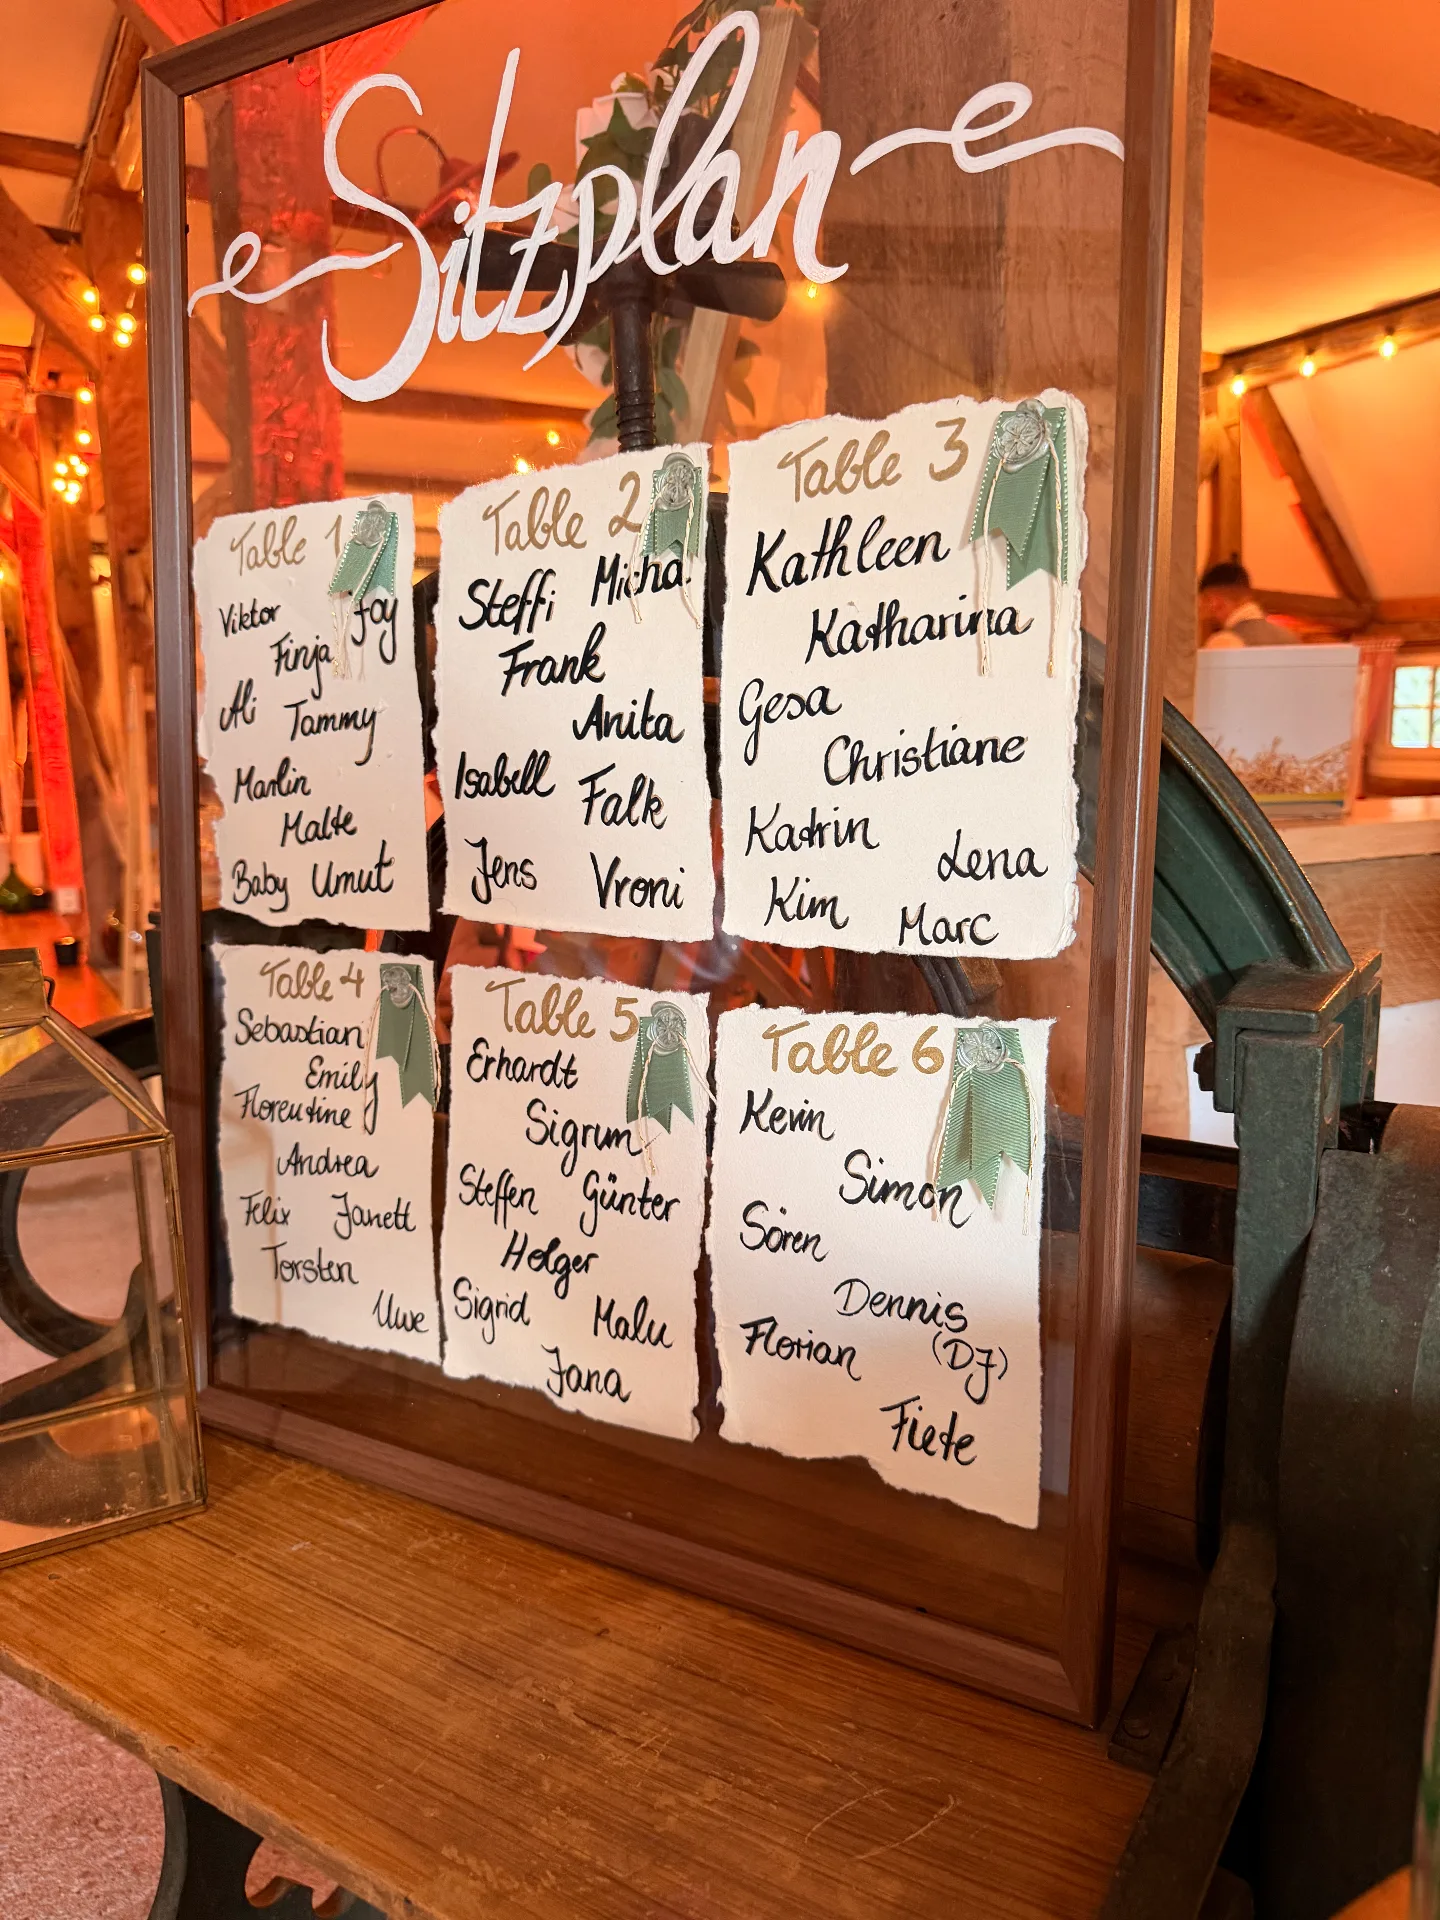 Sitzplan
Table 1
Viktor Joy
Finja
Ali Tammy
Marlin
Malte
Baby Umut
Table 2
Steffi Micha
Frank
Anita
Isabell Falk
Jens Vroni
Table 3
Kathleen
Katharina
Gesa
Christiane
Katrin
Lena
Kim Marc
Table 4
Sebastian
Emily
Florentine
Andrea
Felix Janett
Torsten
Uwe
Table 5
Erhardt
Sigrun
Steffen Günter
Holger
Sigrid Malu
Jana
Table 6
Kevin
Simon
Sören
Dennis
Florian (DJ)
Fiete